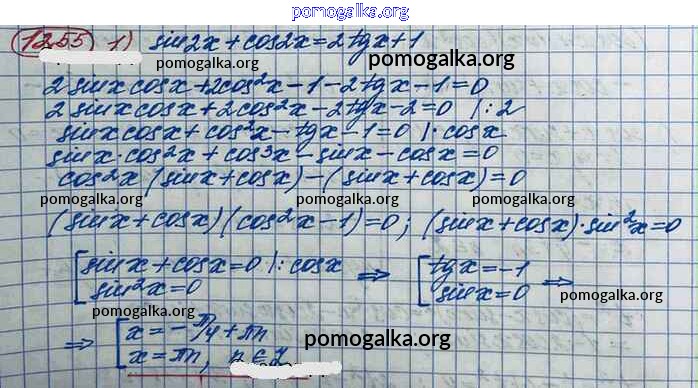 pomogalka.org
1255 1) sin2x + cos2x = 2tgx + 1
pomogalka.org pomogalka.org
2 sinx cosx + 2cos²x - 1 - 2tgx - 1 = 0
pomogalka.org
2 sinx cosx + 2cos²x - 2tgx - 2 = 0 /:2
sinx cosx + cos²x - tgx - 1 = 0 /· cosx
pomogalka.org
sinx·cos²x + cos³x - sinx - cosx = 0
cos²x (sinx + cosx) - (sinx + cosx) = 0
pomogalka.org pomogalka.org pomogalka.org
(sinx + cosx)(cos²x - 1) = 0; (sinx + cosx)·sin²x = 0
[ sinx + cosx = 0 /: cosx ⇒ [ tgx = -1 ⇒
sin²x = 0 sinx = 0
pomogalka.org pomogalka.org
⇒ [ x = -π/4 + πn
pomogalka.org
x = πn, n ∈ Z